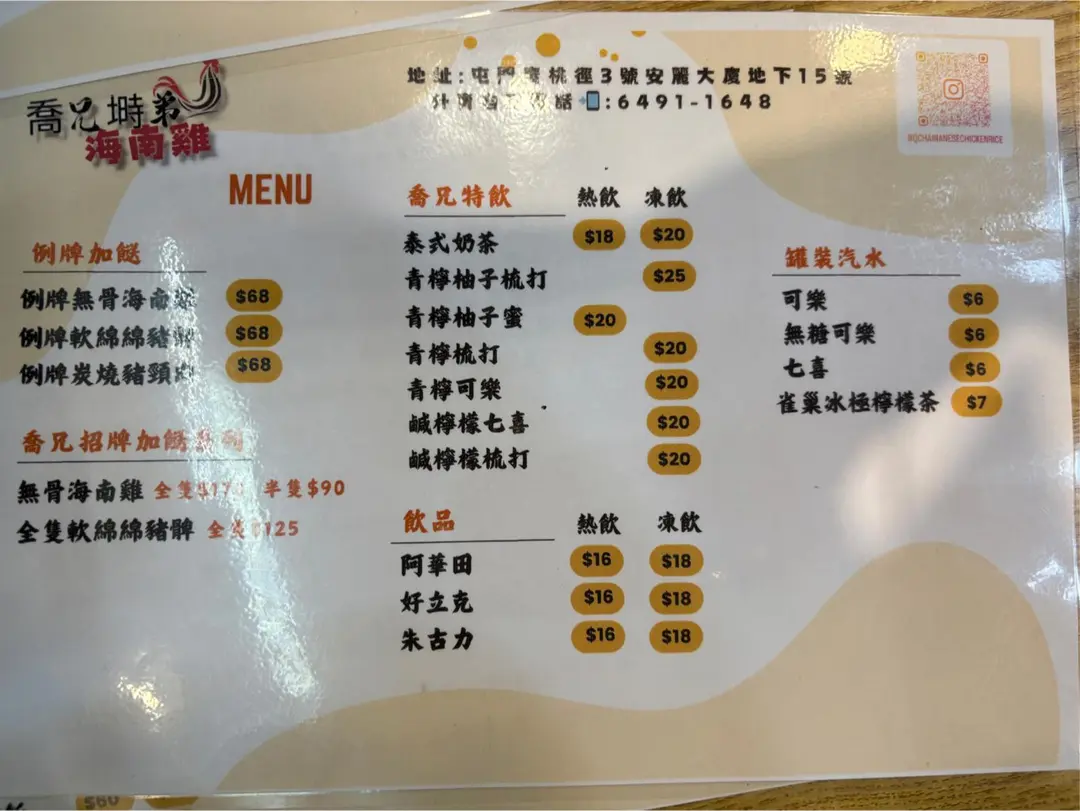 喬兄塒弟
海南雞
地址:屯門寶桃徑3號安麗大廈地下15號
外賣自取電話:6491-1648
MENU
例牌加餸
例牌無骨海南雞 $68
例牌軟綿綿豬髀 $68
例牌炭燒豬頸肉 $68
喬兄招牌加餸系列
無骨海南雞 全隻 半隻$90
全隻軟綿綿豬髀 $125
喬兄特飲 熱飲 凍飲
泰式奶茶 $18 $20
青檸柚子梳打 $25
青檸柚子蜜 $20
青檸梳打 $20
青檸可樂 $20
鹹檸檬七喜 $20
鹹檸檬梳打 $20
飲品 熱飲 凍飲
阿華田 $16 $18
好立克 $16 $18
朱古力 $16 $18
罐裝汽水
可樂 $6
無糖可樂 $6
七喜 $6
雀巢冰極檸檬茶 $7
$60